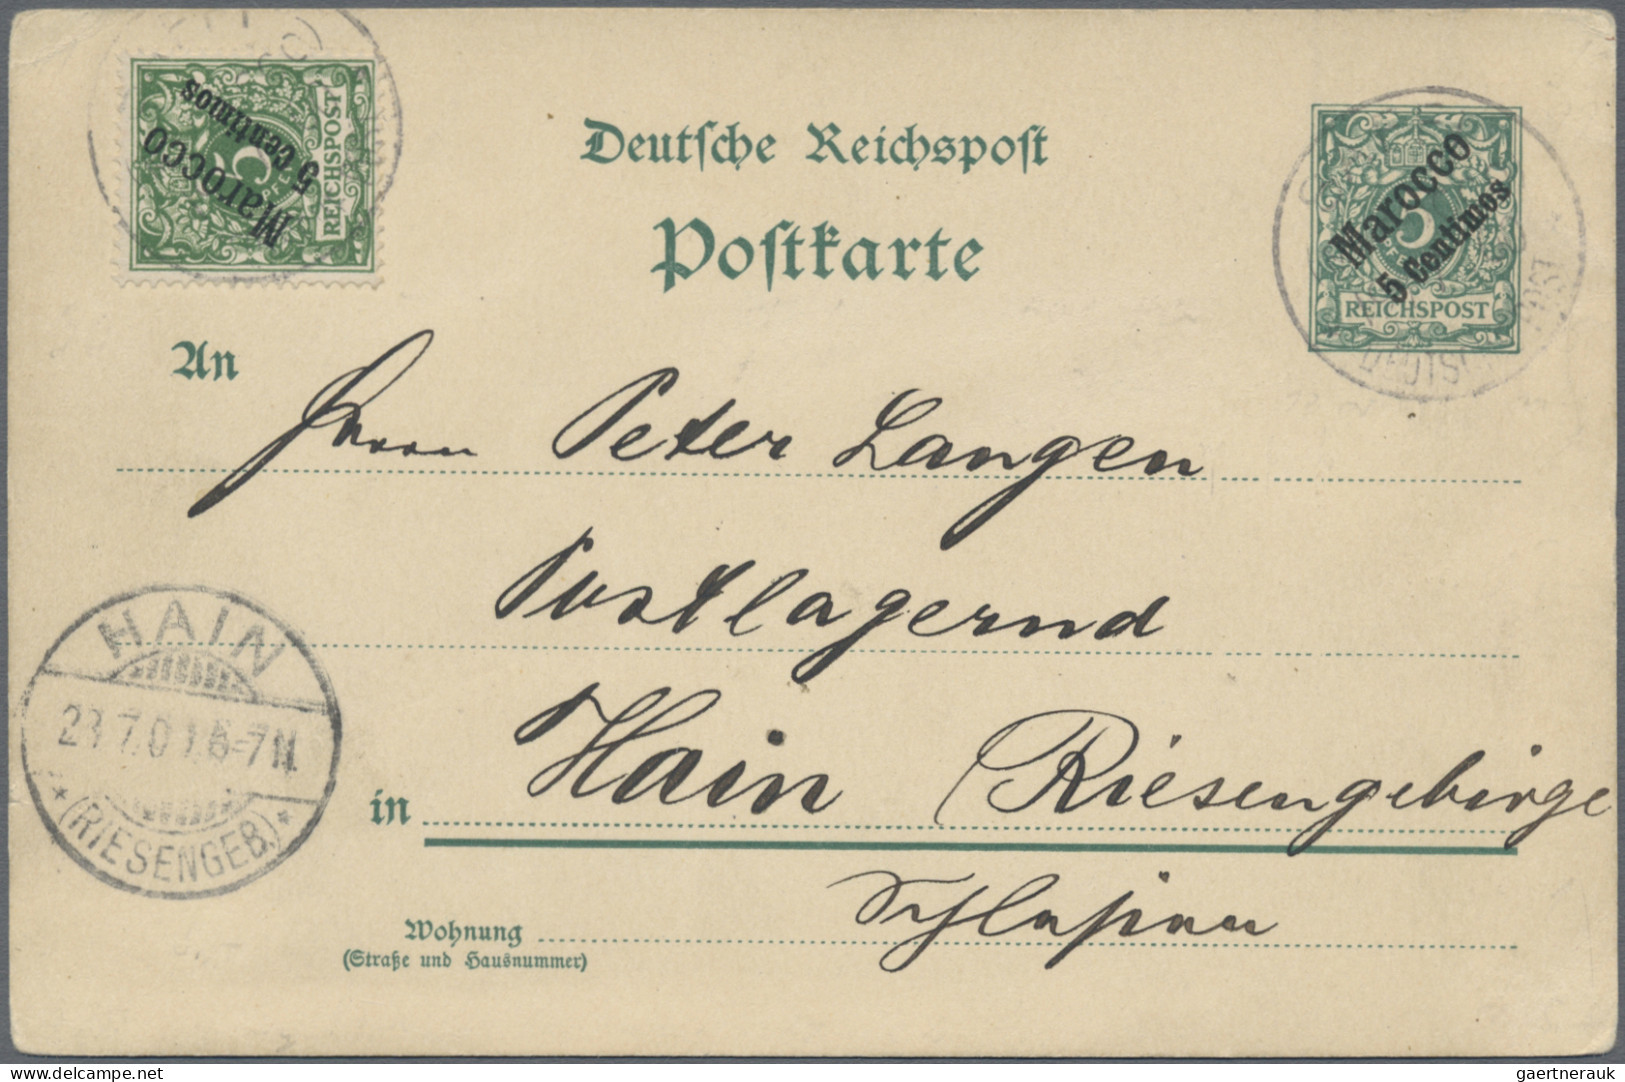 Marocco
5 Centimos
5
PF
REICHSPOST
Deutsche Reichspost
Postkarte
Marocco
5 Centimos
5
REICHSPOST
DEUTSCHE POST
An
Herrn Peter Langen
Postlagernd
in Hain (Riesengebirge
Schlesien
HAIN
7.0 1.6-7N
(RIESENGEB.)
Wohnung
(Straße und Hausnummer)
www.delcampe.net
gaertnerauk